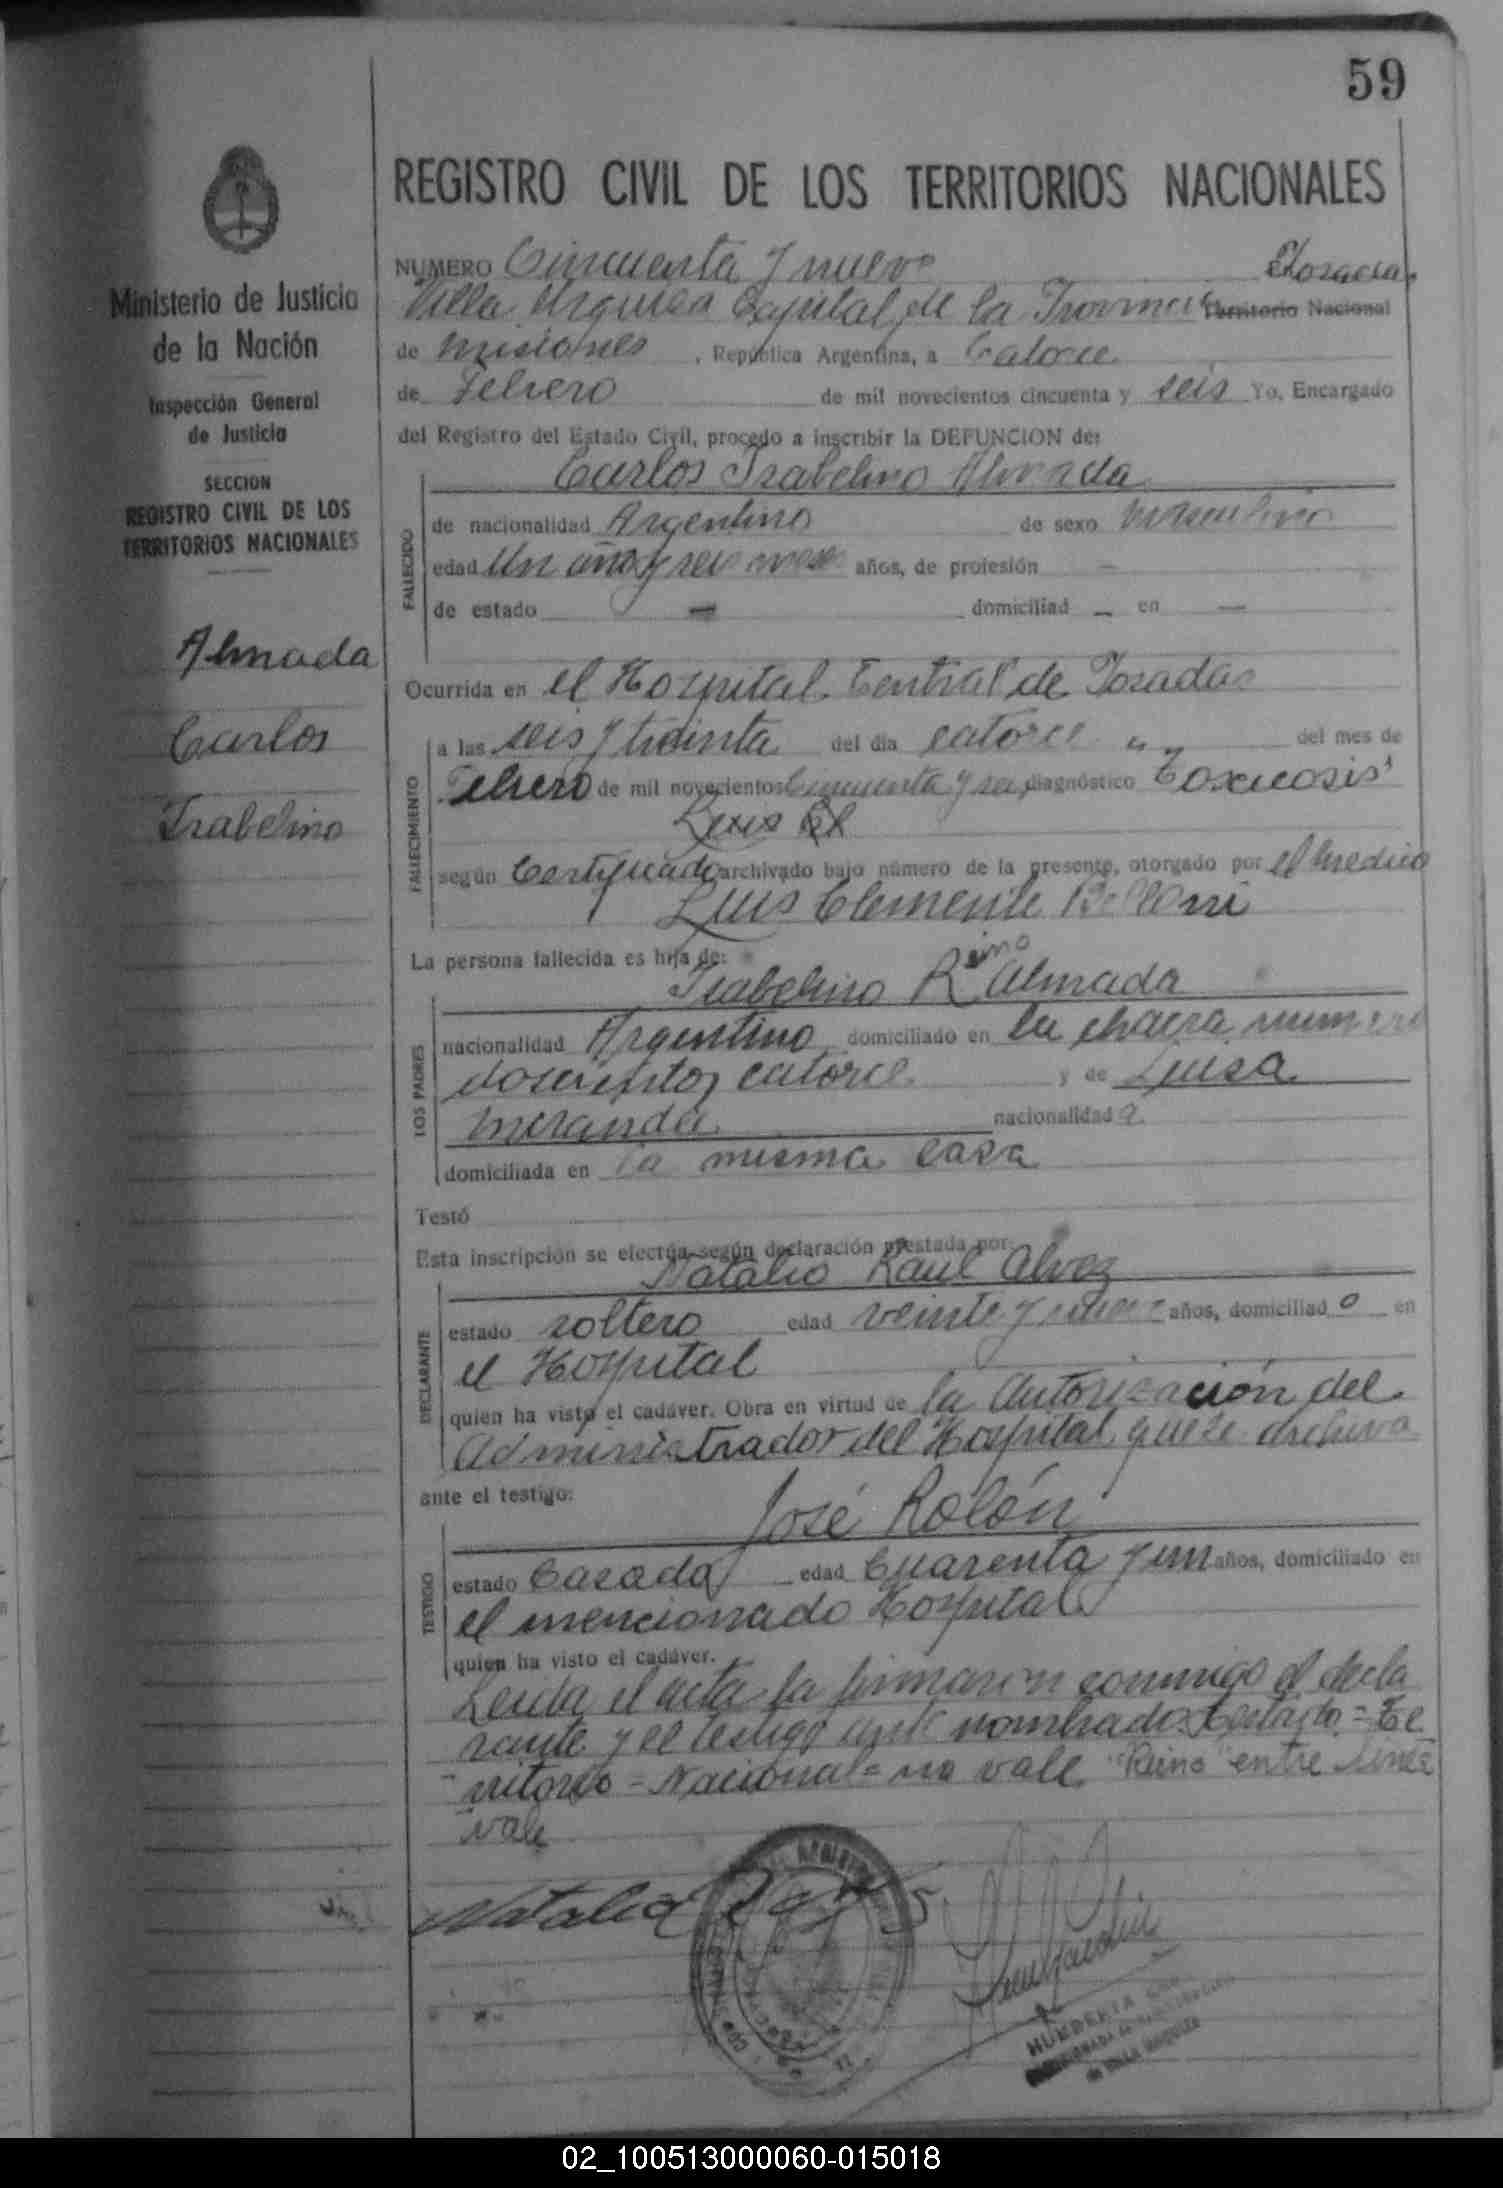 59
REGISTRO CIVIL DE LOS TERRITORIOS NACIONALES
Ministerio de Justicia
de la Nación
Inspección General
de Justicia
SECCION
REGISTRO CIVIL DE LOS
TERRITORIOS NACIONALES
Almada
Carlos
Isabelino
NUMERO Cincuenta y nueve Posadas
Villa Urquiza Capital de la Provincia Territorio Nacional
de Misiones, República Argentina, a Catorce
de Febrero de mil novecientos cincuenta y seis Yo, Encargado
del Registro del Estado Civil, procedo a inscribir la DEFUNCION de:
Carlos Isabelino Almada
FALLECIDO
de nacionalidad Argentino de sexo masculino
edad Un año y seis meses años, de profesión –
de estado – domiciliad – en –
Ocurrida en el Hospital Central de Posadas
FALLECIMIENTO
a las seis y treinta del día catorce del mes de
Febrero de mil novecientos Cincuenta y seis diagnóstico Toxicosis
Luis
según Certificado archivado bajo número de la presente, otorgado por el médico
Luis Clemente
La persona fallecida es hija de:
Isabelino R eino Almada
LOS PADRES
nacionalidad Argentino domiciliado en la chacra numero
doscientos catorce y de Luisa
Miranda nacionalidad a
domiciliada en la misma casa
Testó
Esta inscripción se efectúa según declaración prestada por:
Natalio Raul Alvez
DECLARANTE
estado soltero edad veinte y nueve años, domiciliad o en
el Hospital
quien ha visto el cadáver. Obra en virtud de la Autorización del
Administrador del Hospital que se archiva
ante el testigo:
José Rolón
TESTIGO
estado Casado edad Cuarenta y un años, domiciliado en
el mencionado Hospital
quien ha visto el cadáver.
Leida el acta la firmaron conmigo el decla
rante y el testigo ante nombrado. Testado = Te
rritorio = Nacional = no vale "Reino" entre lineas
vale
Natalio
HUMBERTA